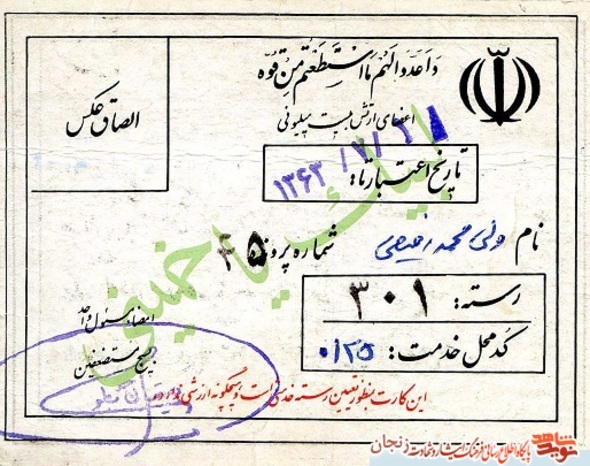 وَاَعِدّوا لَهُم مَا اسْتَطَعْتُمْ مِنْ قُوَّه
اعضای ارتش بیست میلیونی
الصاق عکس
تاریخ اعتبار تا: ۱۳۶۳/۷/
نام ولی محمد رفیعی
شماره پرونده ۴۵
لبیک یا خمینی
رسته: ۳۰۱
کد محل خدمت: ۰۱۲۵
امضاء مسئول واحد
بسیج مستضعفین
این کارت بمنظور تعیین رسته خدمتی است و هیچگونه ارزشی ندارد
نوید شاهد
پایگاه اطلاع رسانی فرهنگ ایثار و شهادت زنجان